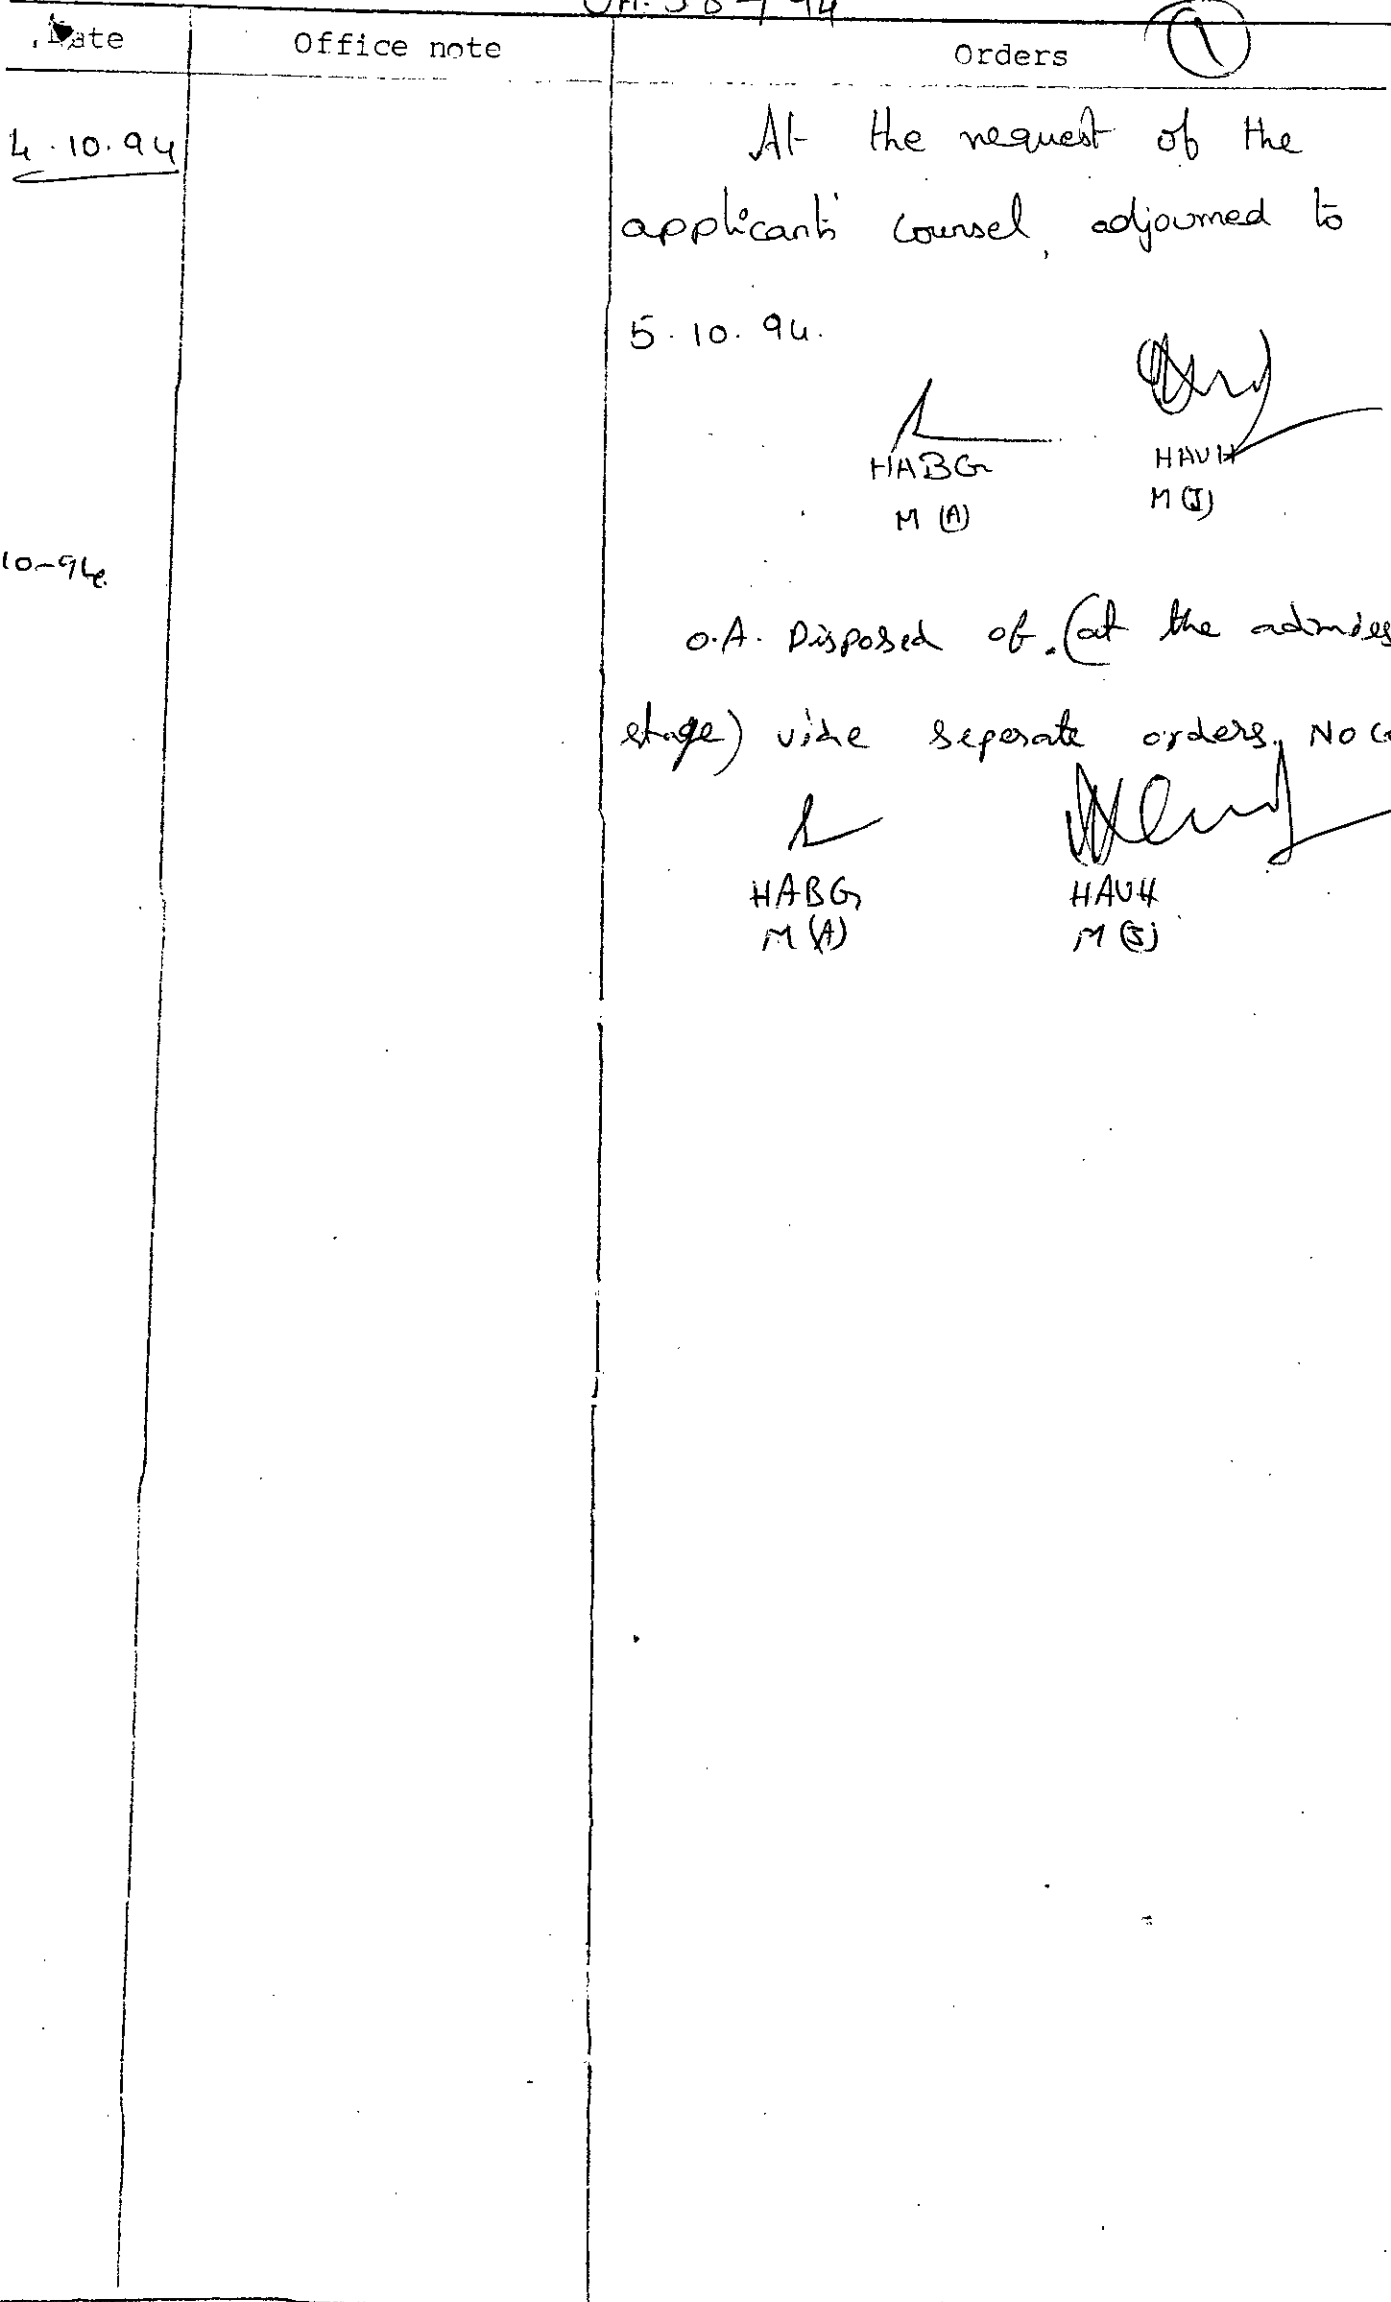 Date Office note Orders 1
4.10.94
At the request of the
applicant's counsel, adjourned to
5.10.94.
HABG HAVH
M (A) M (J)
10-94
O.A. Disposed of. (at the admiss
stage) vide seperate orders. No
HABG HAVH
M (A) M (J)